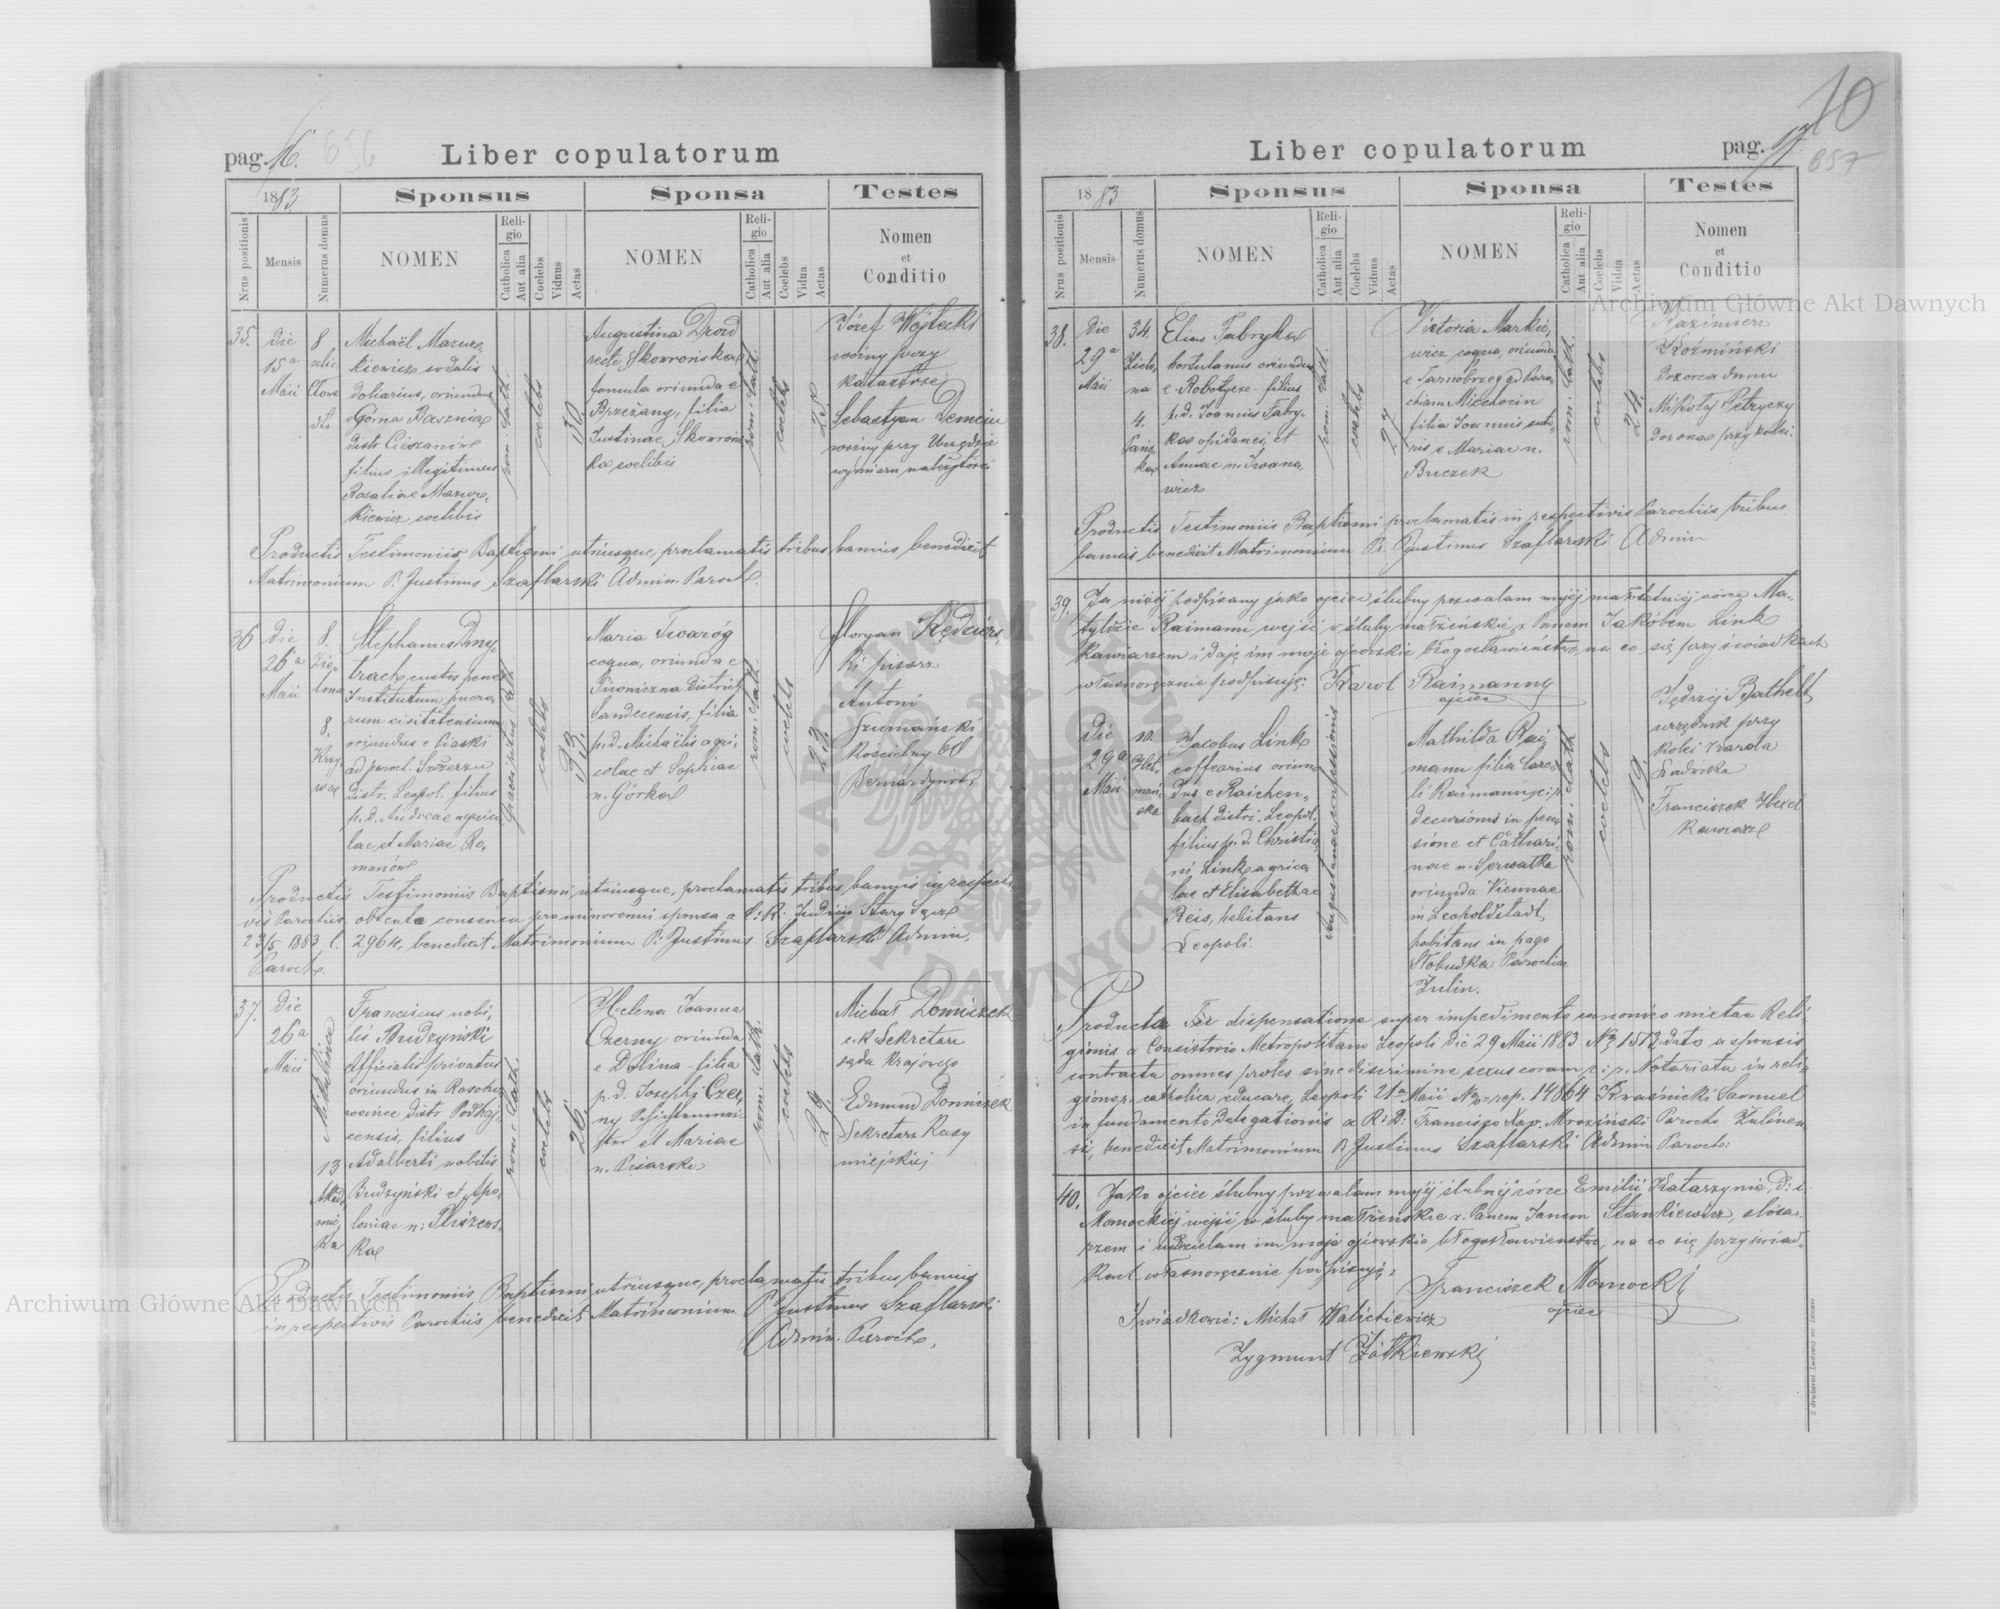 pag. 16. 656
Liber copulatorum
1883
Sponsus
Sponsa
Testes
Nrus positionis
Mensis
Numerus domus
NOMEN
Religio
Catholica
Aut alia
Coelebs
Viduus
Aetas
NOMEN
Religio
Catholica
Aut alia
Coelebs
Vidua
Aetas
Nomen
et
Conditio
35.
die
15a
Maii
8
Michaël Mazur-
kiewicz sodalis
doliarius, oriundus
distr Cieszanów
filius illegitimus
Rosaliae Mazur-
kiewicz coelibis
rom. cath.
coelebs
30.
Augustina Drozd
recte Skowrońska
famula oriunda e
Brzezany, filia
Justinae Skowroń-
ka coelibis
rom. cath.
coelebs
Józef Wojtecki
woźny przy
katastrze
Sebastyan
woźny przy Urzędzie
wymiaru należytości
Productis Testimoniis Baptismi utriusque, proclamatis tribus bannis benedixit
Matrimonium P. Justinus Szaflarski Admin. Paroch.
36
die
26a
Maii
8.
Zie-
lona
8.
Stephanus Dmy-
trach custos penes
Institutum
oriundus e Piaski
ad paroch.
distr. Leopol. filius
p.d. Andreae agrico-
lae et Mariae Ro-
manów
coelebs
33.
Maria Twaróg
coqua, oriunda e
Piwniczna districts
Sandecensis, filia
p.d. Michaëlis agri-
colae et Sophiae
n. Górka
rom. cath.
coelebs
23.
Floryan Kędziers-
ki pisarz
Antoni
Szumański
Kościelny od
Bernardynów
Productis Testimoniis Baptismi utriusque, proclamatis tribus bannis in respecti-
vis Parochiis, obtenta consensu pro minorenni sponsa a C. R. Judicio Stary Sącz
23/5 1883 l. 2964, benedixit Matrimonium P. Justinus Szaflarski Admin.
Paroch.
37.
die
26a
Maii
Mikulińce
13
Akade-
mic-
ka
Franciscus nobi-
lis Budzyński
officialis privatus
oriundus in Rosocho-
waniec distr Podhaj-
censis, filius
Adalberti nobilis
Budzyński et Apo-
loniae n:
rom. cath.
coelebs
26.
Helena Joanna
Czerny oriunda
e Dolina filia
p.d. Josephi Czer-
ny
et Mariae
n. Pisarska
rom. cath.
coelebs
29.
Michał Domiczek
c.k Sekretarz
sądu Krajowego
Edmund Domiczek
Sekretarz Rady
miejskiej
Productis Testimoniis Baptismi utriusque, proclamatis tribus bannis
in respectivis Parochiis benedixit Matrimonium P Justinus Szaflarski
Admin. Paroch.
10
Liber copulatorum
pag. 17.
657
1883
Sponsus
Sponsa
Testes
Nrus positionis
Mensis
Numerus domus
NOMEN
Religio
Catholica
Aut alia
Coelebs
Viduus
Aetas
NOMEN
Religio
Catholica
Aut alia
Coelebs
Vidua
Aetas
Nomen
et
Conditio
38.
die
29a
Maii
34.
4.
Elias Fabryka
hortulanus oriundus
e Robotycze filius
p.d. Joannis Faby-
kae opidanei, et
Annae n. Iwana-
wicz
rom. cath.
coelebs
27
Victoria Markie-
wicz coqua, oriunda
e Tarnobrzeg ad Paro-
chiam Miechocin
filia Joannis suto-
ris e Mariae n.
Buczek
rom. cath.
coelebs
24.
Kazimierz
Koźmiński
dozorca domu
Mikołaj Petryczy
dozorca przy kolei.
Productis Testimoniis Baptismi proclamatis in respectivis Parochiis tribus
bannis benedixit Matrimonium P. Justinus Szaflarski Admin
39.
Ja niżej podpisany jako ojciec ślubny pozwalam mojej małoletniej córce Ma-
tyldzie Raimann wejść w śluby małżeńskie z Panem Jakóbem Link
Kawiarzem i daję im moje ojcowskie błogosławieństwo na co się przy świadkach
własnoręcznie podpisuję: Karol Raimanny
ojciec
die
29a
Maii
Het-
mań-
ska
Jacobus Link
coffearius oriun-
dus e Raichen-
bach distri. Leopol.
filius p. d. Christia-
ni Link agrico-
lae et Elisabethae
Reis, habitans
Leopoli.
Augustanae confessionis
Mathilda Rai-
mann filia Caro-
li Raimann
decurionis in pen-
sione et Cathari-
nae n. Serwatka
oriunda Viennae
in Leopoldstadt
habitans in pago
Słobudka Parochiae
Żulin.
rom. cath
coelebs
19.
Jędrzej Bathelt
urzędnik przy
kolei Karola
Ludwika
Franciszek
Kawiarz
dispensatione super impedimento canonico mixtae Reli-
gionis a Consistorio Metropolitano Leopoli die 29 Maii 1883 No 1513 dato a sponsis
contractu omnes proles sine discrimine sexus coram p: p. Notariatu in reli-
gione r. catholica educare, Leopoli 21a Maii No rep. 14864 Kraśnicki Samuel
in fundamento Delegationis a R: D: Francisco Xav. Mroziński Parocho Zulinen-
si, benedixit Matrimonium P Justinus Szaflarski Admin Paroch:
40.
Jako ojciec ślubny pozwalam mojej ślubnej córce Emilii Katarzynie d: i.
Momockiej wejść w śluby małżeńskie z Panem Janem Stankiewicz, ślósa-
rzem i udzielam im moje ojcowskie błogosławieństwo, na co się przy świad-
kach własnoręcznie podpisuję:
Franciszek Momocki
ojciec
Świadkowie: Michał
Zygmunt Żółkiewski
Z drukarni Ludowej we Lwowie
Archiwum Główne Akt Dawnych
Archiwum Główne Akt Dawnych